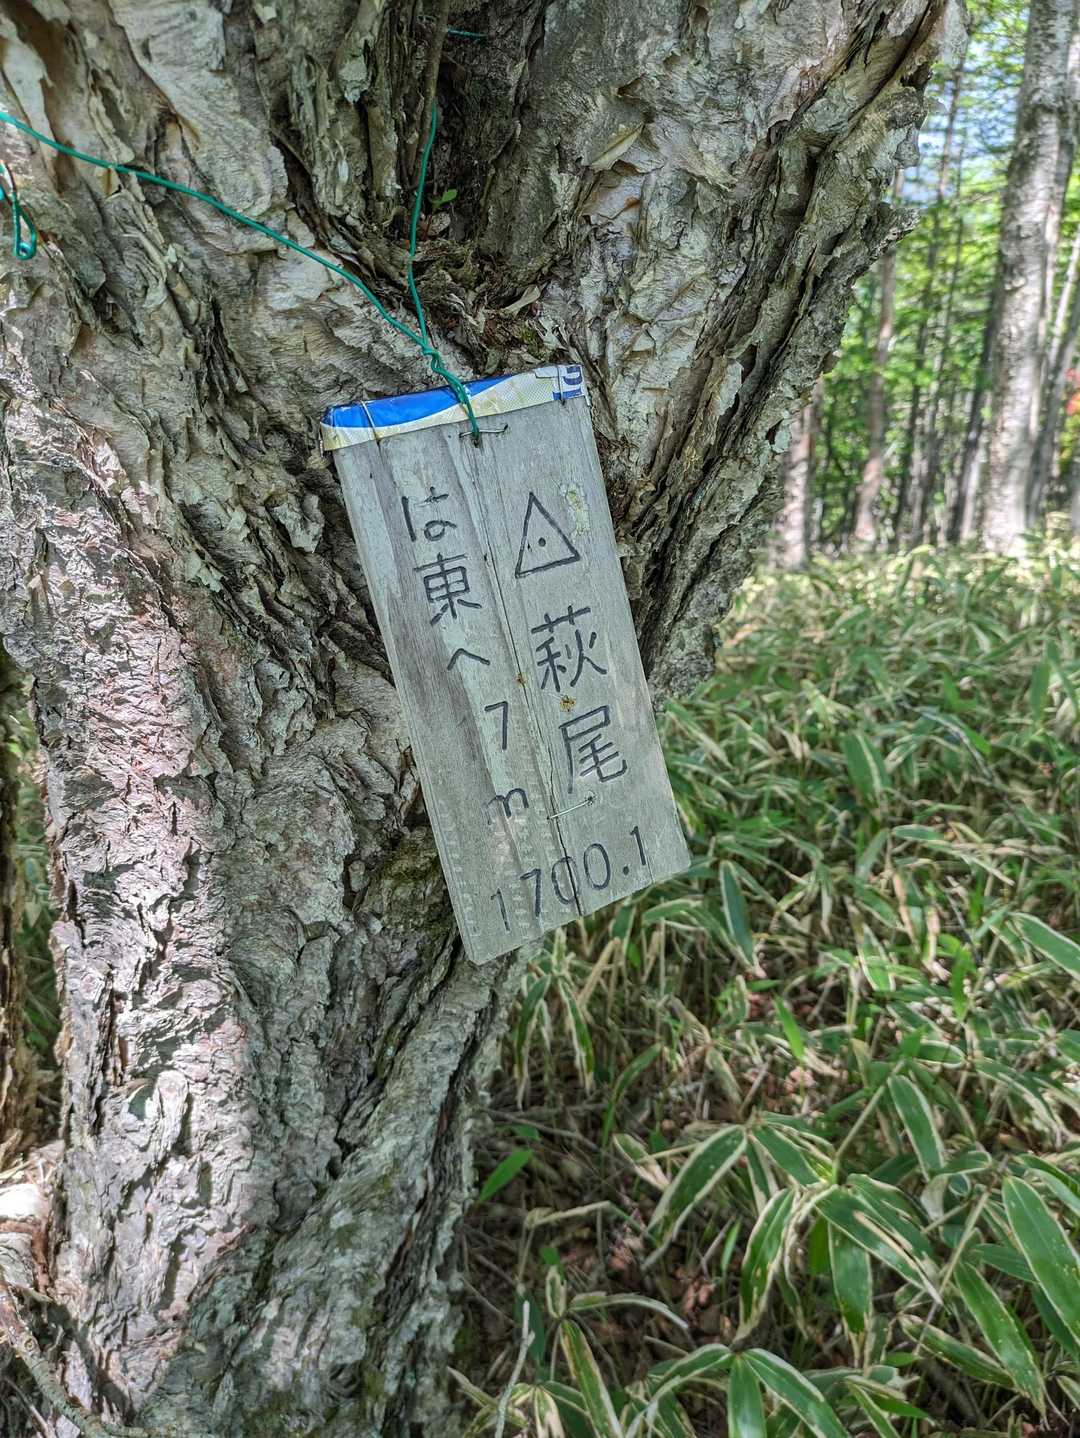 萩尾
は東へ7m
1700.1